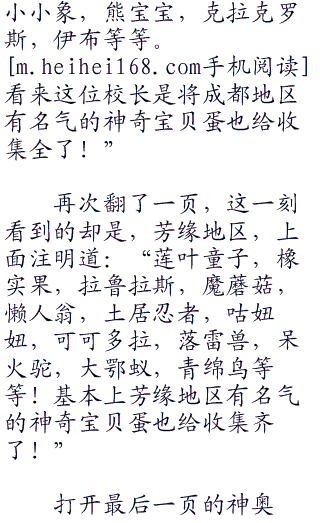 小小象，熊宝宝，克拉克罗
斯，伊布等等。
[m.heihei168.com手机阅读]
看来这位校长是将成都地区
有名气的神奇宝贝蛋也给收
集全了！”
再次翻了一页，这一刻
看到的却是，芳缘地区，上
面注明道：“莲叶童子，橡
实果，拉鲁拉斯，魔蘑菇，
懒人翁，土居忍者，咕妞
妞，可可多拉，落雷兽，呆
火驼，大鄂蚁，青绵鸟等
等！基本上芳缘地区有名气
的神奇宝贝蛋也给收集齐
了！”
打开最后一页的神奥